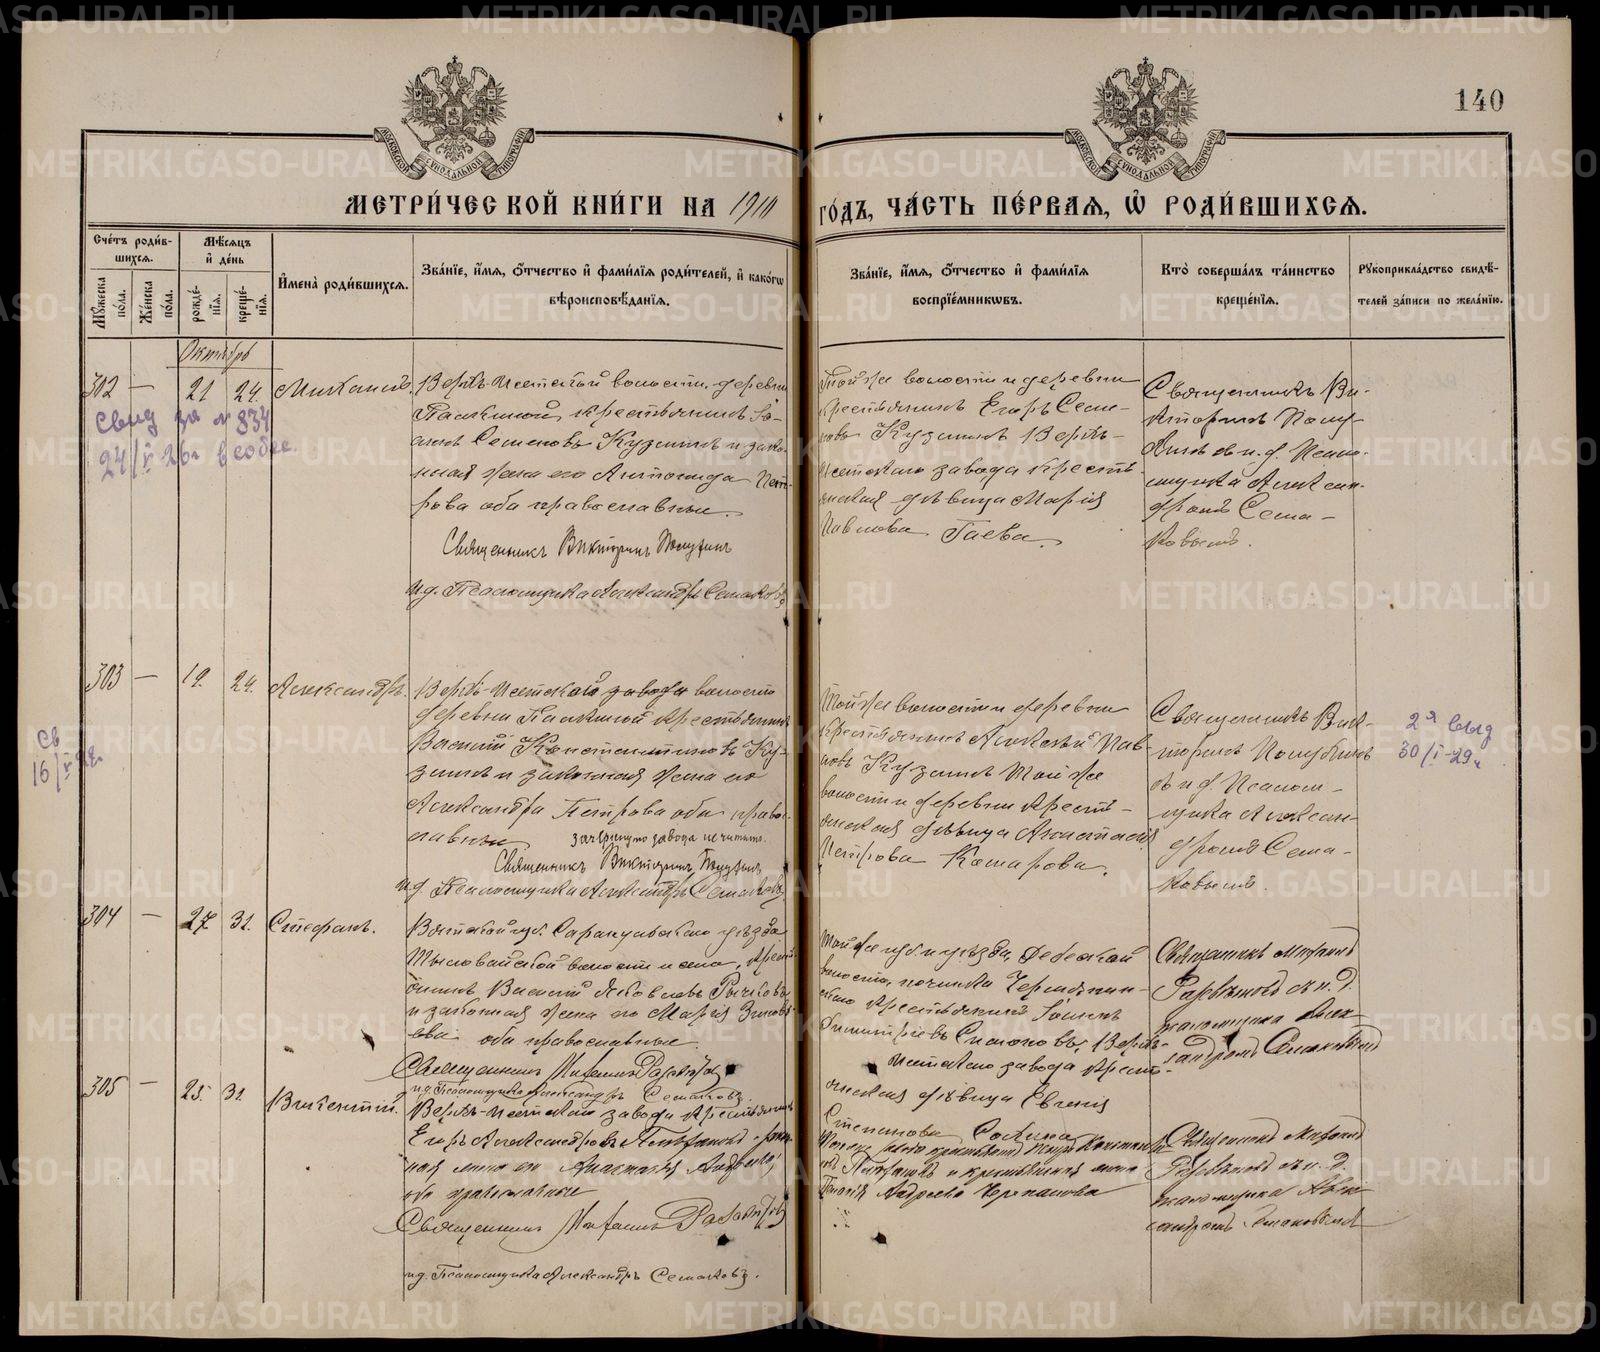 140
МЕТРИ́ЧЕСКОЙ КНИ́ГИ НА 1910 ГО́ДЪ, ЧА́СТЬ ПЕ́РВАЯ, Ѡ РОДИ́ВШИХСЯ.
Сче́тъ роди́в-
шихся.
Мꙋ́жеска по́ла.
Же́нска по́ла.
Мѣ́сяцъ
и҆ де́нь
рожде́-
нїя.
креще́-
нїя.
И҆мена̀ роди́вшихся.
Зва́нїе, и҆́мя, ѻ҆́тчество и҆ фами́лїя роди́телей, и҆ како́гѡ
вѣроисповѣ́данїя.
Зва́нїе, и҆́мя, ѻ҆́тчество и҆ фами́лїя
воспрїе́мникѡвъ.
Кто̀ соверша́лъ та́инство
креще́нїя.
Рꙋкоприкла́дство свидѣ́-
телей за́писи по жела́нїю.
Октябрь
302 — 21 24. Михаилъ.
Верхъ-Исетской волости, деревни
Палкиной, крестьянинъ Іо-
аннъ Семеновъ Кузминъ и зако-
нная жена его Антонида Пет-
рова оба православныи.
Священникъ Викторинъ Полубинъ
и.д. Псаломщика Александръ Семаковъ
Той же волости и деревни
крестьянинъ Егоръ Семе-
новъ Кузминъ Верхъ-
Исетскаго завода кресть-
янская дѣвица Марія
Павлова Гаева.
Священникъ Ви-
кторинъ Полу-
бинъ съ и. д. Псало-
мщика Алексан-
дромъ Сема-
ковымъ.
Свид за № 834
24/V 26г
303 — 19. 24. Александръ.
Верхъ-Исетской завода волости
деревни Палкиной крестьянинъ
Василій Константиновъ Куз-
минъ и законная жена его
Александра Петрова оба право-
славныи.
зачеркнуто завода не читать.
Священникъ Викторинъ Полубинъ
и.д. Псаломщика Александръ Семаковъ
Той же волости и деревни
крестьянинъ Алексѣй Пав-
ловъ Кузминъ Той же
волости и деревни крестъ-
янская дѣвица Анастасія
Петрова Комарова.
Священникъ Вик-
торинъ Полубинъ
съ и.д. Псалом-
щика Алексан-
дромъ Сема-
ковымъ.
2я выд
30/I-29г
304 — 27 31. Стефанъ.
Вятской губ. Сарапульскаго уѣзда
волости и села, крест-
янинъ Василій Яковлевъ Рычковъ
и законная жена его Марія
оба православные.
Священникъ
и.д. Псаломщика Александръ Семаковъ.
Той же губ. и уѣзда, Дебесской
волости, починка
крестьянинъ Іоаннъ
Димитріевъ Верхъ-
Исетскаго завода крест-
янская дѣвица Евгенія
Степанова
Священникъ
съ и. д.
псаломщика Алек-
сандромъ Семаковымъ
305 — 25. 31. Викентій.
Верхъ-Исетскаго завода крестьянинъ
Егоръ Александровъ закон-
ная жена его Анастасія Андреева,
оба православные
Священникъ
и.д. Псаломщика Александръ Семаковъ.
и крестьянская жена
Андреева Черепанова
Священникъ
съ и. д.
псаломщика Алек-
сандромъ Семаковымъ
METRIKI.GASO-URAL.RU